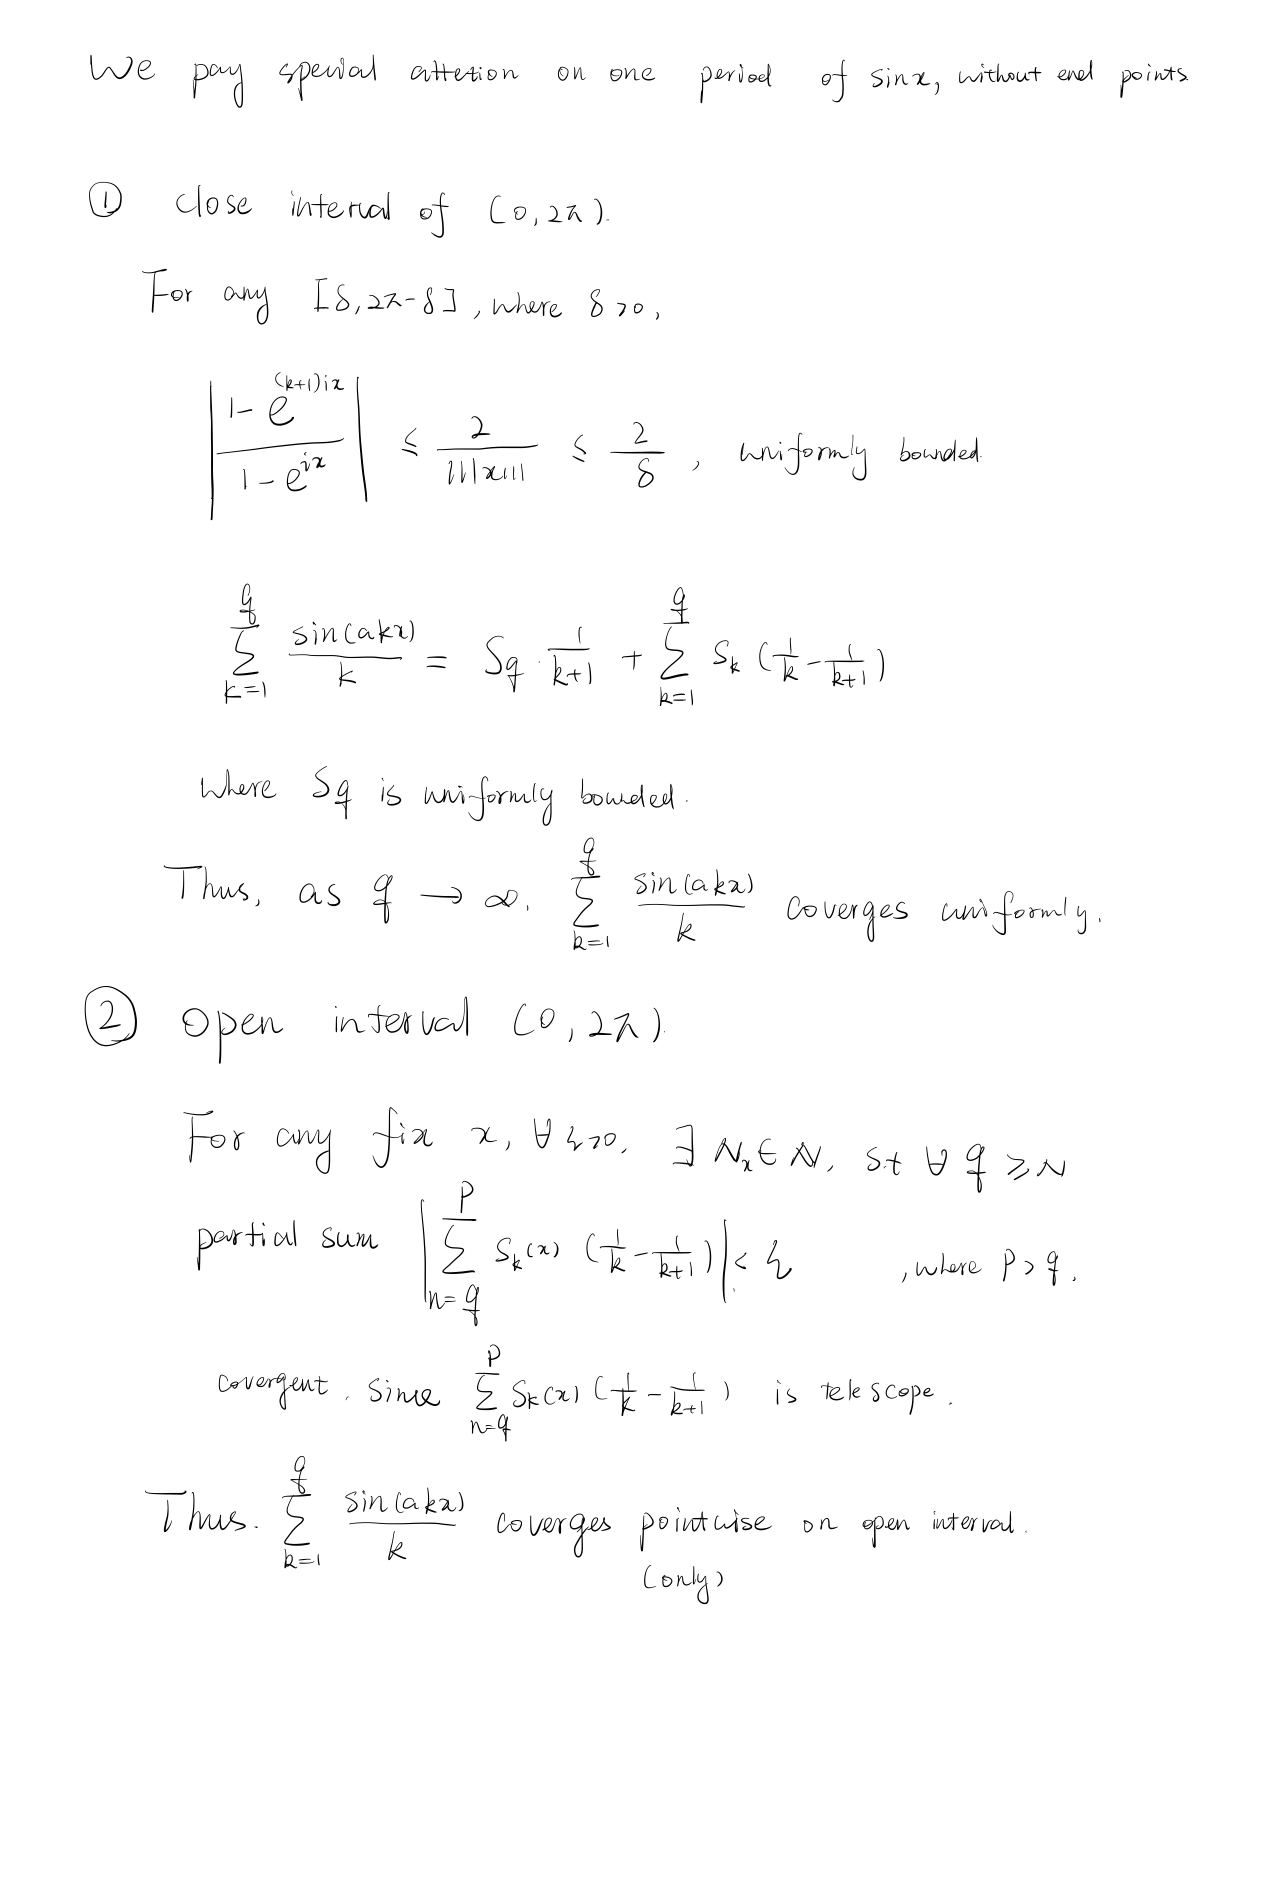 We pay spevial attetion on one period of sinx, without end points
① close interval of (0, 2π).
For any [δ, 2π-δ], where δ>0,
|(1-e^{(k+1)ix})/(1-e^{ix})| ≤ 2/|||x||| ≤ 2/δ, uniformly bounded.
∑_{k=1}^{q} sin(akx)/k = Sq · 1/(k+1) + ∑_{k=1}^{q} S_k (1/k - 1/(k+1))
where Sq is uniformly bounded.
Thus, as q → ∞. ∑_{k=1}^{q} sin(akx)/k coverges uniformly.
② open interval (0, 2π).
For any fix x, ∀ξ>0, ∃ N_x ∈ ℕ, s.t ∀ q ≥ N
partial sum |∑_{n=q}^{p} S_k(x) (1/k - 1/(k+1))| < ξ , where p > q.
covergent. Since ∑_{n=q}^{p} S_k(x) (1/k - 1/(k+1)) is telescope.
Thus. ∑_{k=1}^{q} sin(akx)/k coverges pointwise on open interval.
(only)